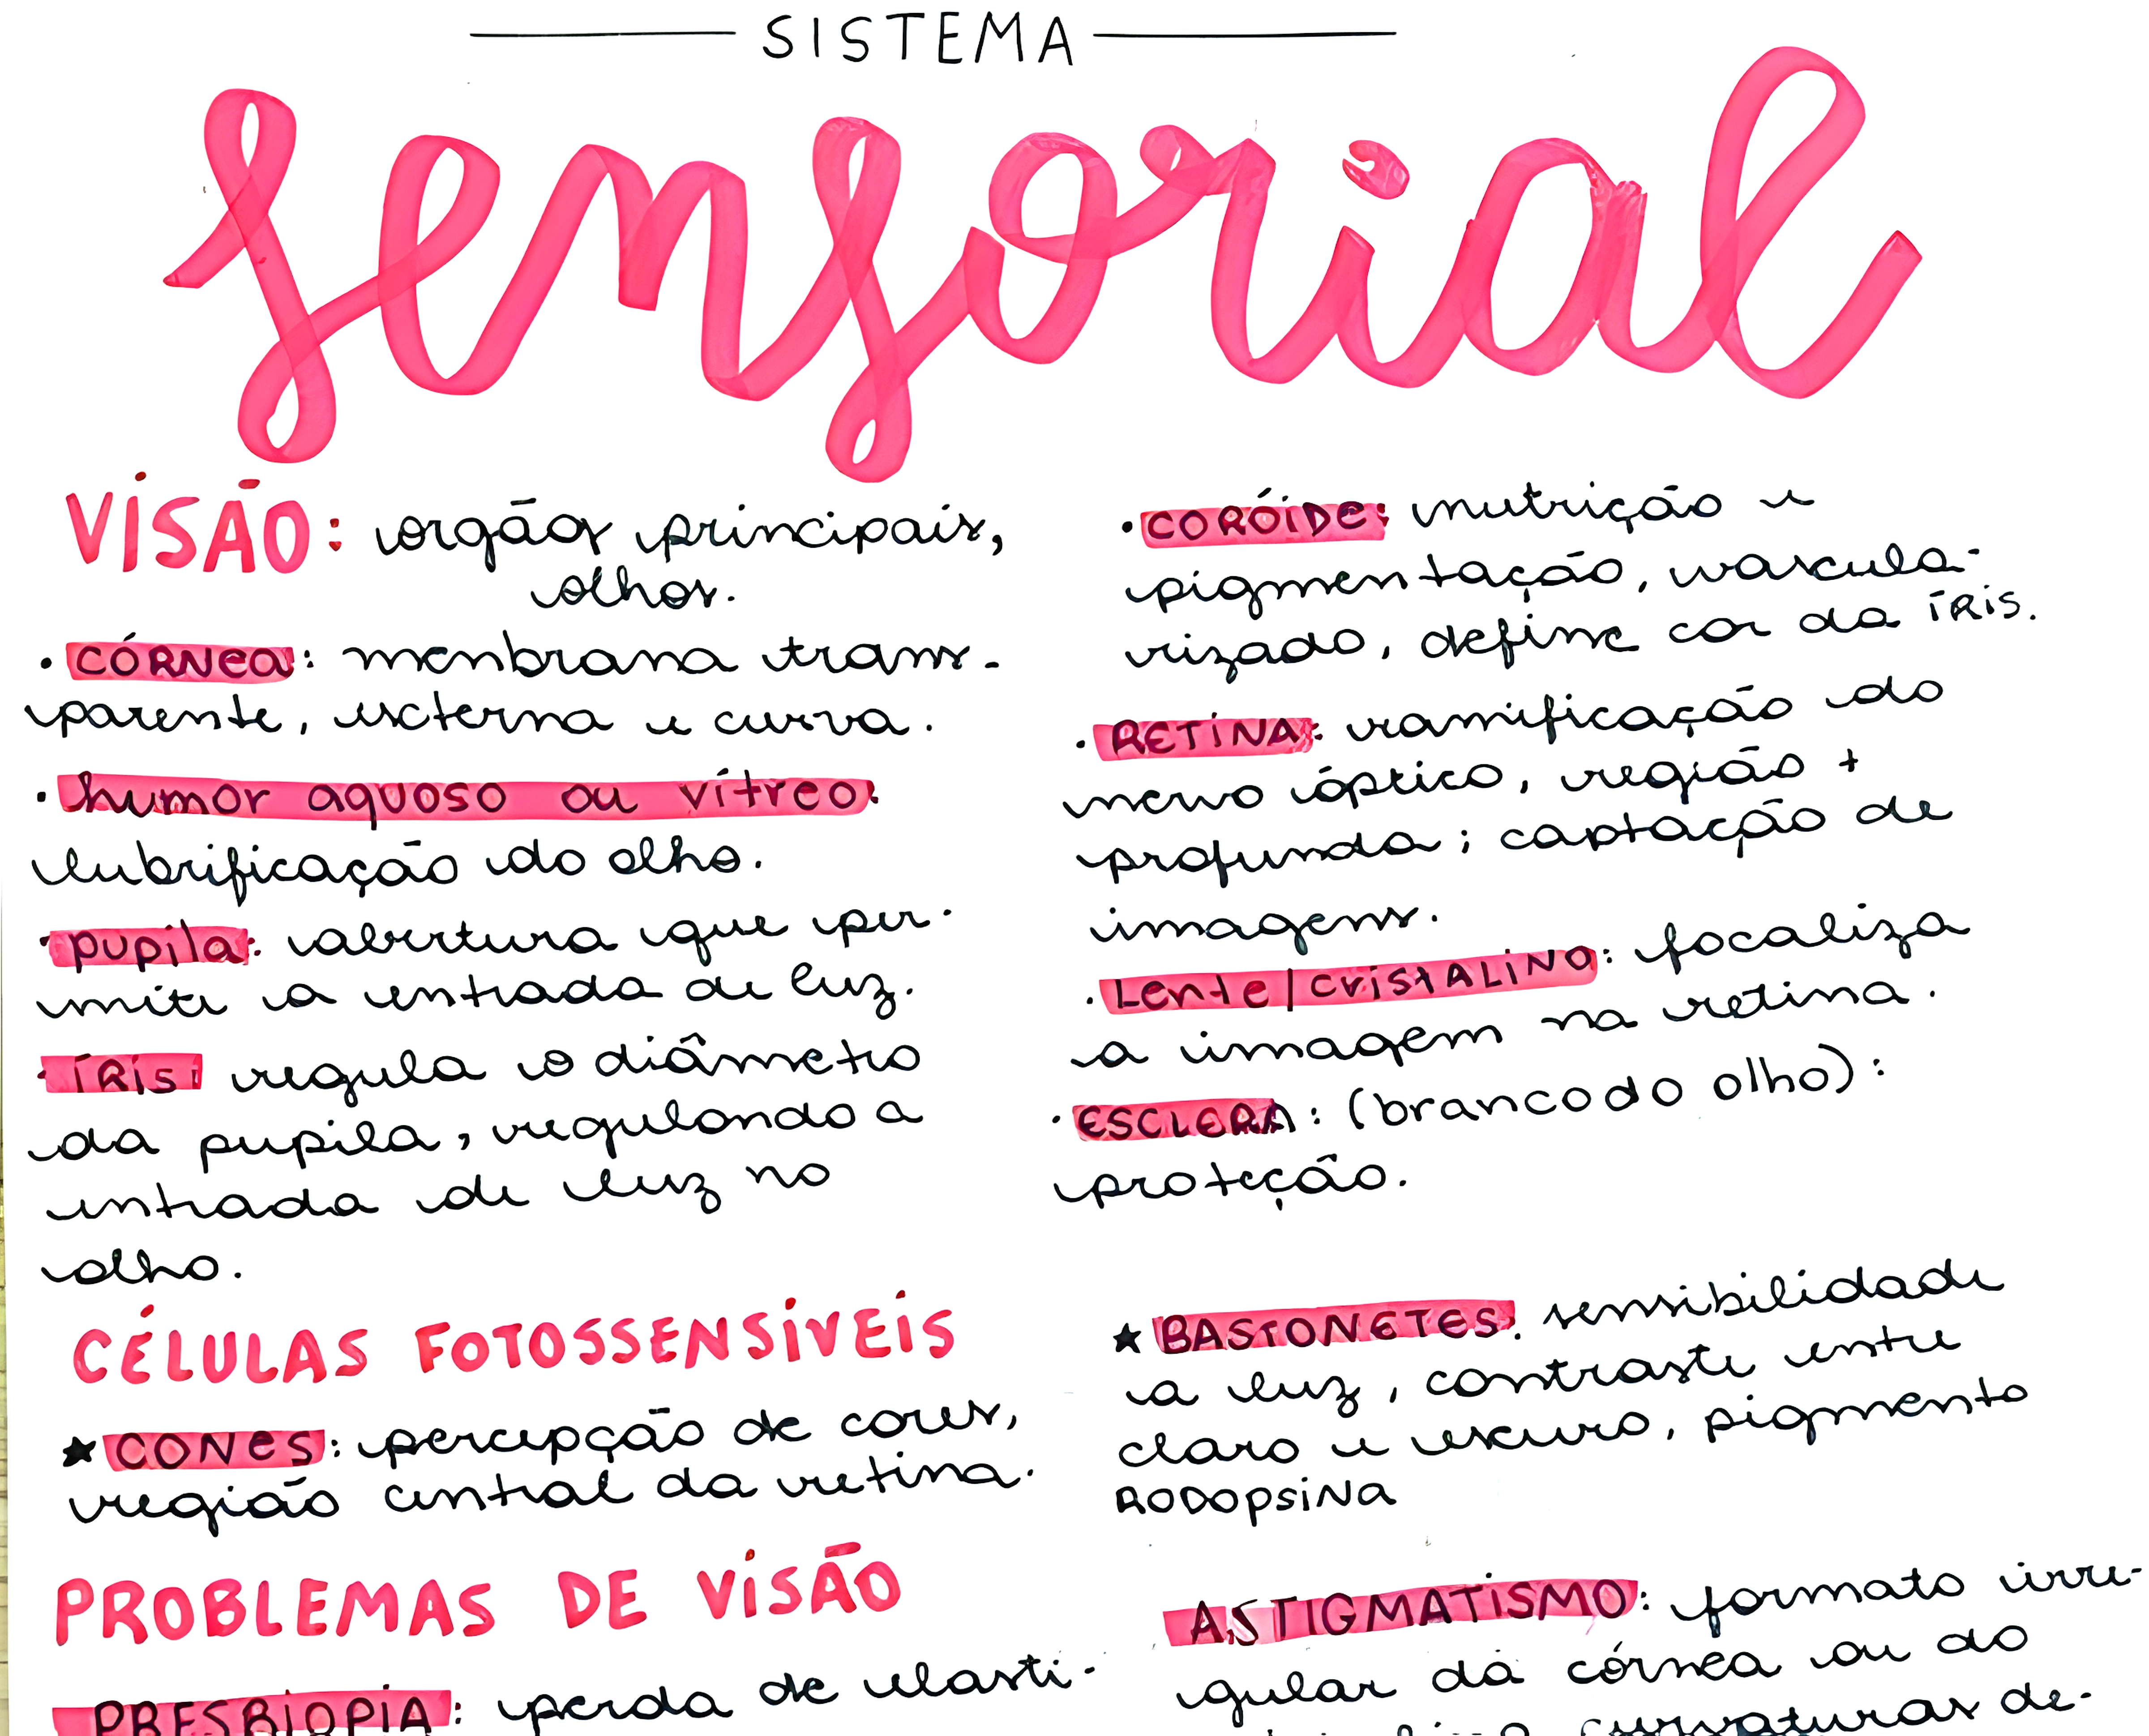 SISTEMA
sensorial
VISÃO: orgãos principais,
olhos.
• CÓRNea: menbrana trans-
parente, externa e curva.
• humor aquoso ou vítreo:
lubrificação do olho.
• pupila: abertura que per-
mite a entrada de luz.
• ÍRis: regula o diâmetro
da pupila, regulando a
entrada de luz no
olho.
• CORÓIDe: nutrição e
pigmentação, vascula-
rizado, define cor da ÍRis.
• RETINA: ramificação do
nervo óptico, região +
profunda; captação de
imagens.
• Lente/CRISTALINO: focaliza
a imagem na retina.
• ESCLERA: (branco do olho):
proteção.
CÉLULAS FOTOSSENSÍVEIS
★ CONES: percepção de cores,
região central da retina.
★ BASTONETES: sensibilidade
a luz, contraste entre
claro e escuro, pigmento
RODOPSINA
PROBLEMAS DE VISÃO
PRESBIOPIA: perda de elasti-
ASTIGMATISMO: formato irre-
gular da córnea ou do
curvaturas de-